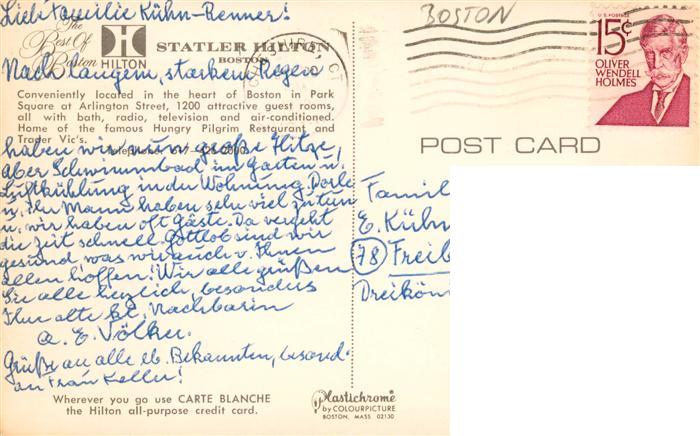 Liebe Familie Kühn-Renner!
The
Best Of
Boston
HILTON
STATLER HILTON
BOSTON
Nach langem, starkem Regen
Conveniently located in the heart of Boston in Park
Square at Arlington Street, 1200 attractive guest rooms,
all with bath, radio, television and air-conditioned.
Home of the famous Hungry Pilgrim Restaurant and
Trader Vic's.
Telephone
haben wir nun große Hitze,
Aber Schwimmbad im Garten u.
Luftkühlung in der Wohnung. Dorle
u. ihr Mann haben sehr viel zu tun
u. wir haben oft Gäste. Da vergeht
die Zeit schnell. Gottlob sind wir
gesund was wir auch v. Ihnen
allen hoffen! Wir alle grüßen
Sie alle herzlich, besonders
Ihre alte Nachbarin
a. E. Völker.
Grüße an alle lb. Bekannten, besond.
an Frau Keller!
Wherever you go use CARTE BLANCHE
the Hilton all-purpose credit card.
Plastichrome
by COLOURPICTURE
BOSTON, MASS 02130
BOSTON
CT
U.S. POSTAGE
15¢
OLIVER
WENDELL
HOLMES
POST CARD
Famil
E. Kühn
78 Freib
Dreikön